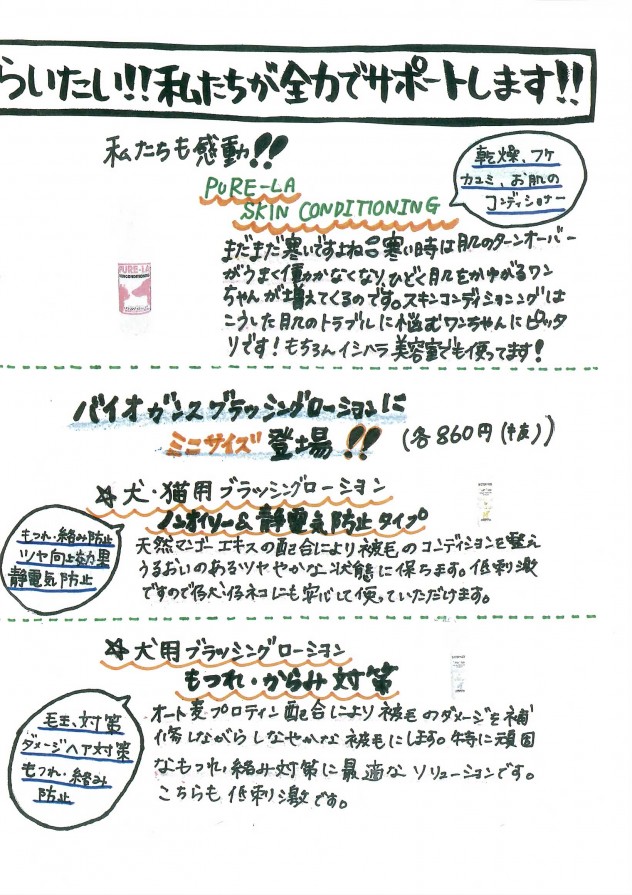 らいたい!!私たちが全力でサポートします!!
私たちも感動!!
PURE-LA
SKIN CONDITIONING
乾燥、フケ
カユミ、お肌の
コンディショナー
まだまだ寒いですよね 寒い時は肌のターンオーバー
がうまく働かなくなり、ひどく肌をかゆがるワン
ちゃんが増えてくるのです。スキンコンディショニングは
こうした肌のトラブルに悩むワンちゃんにピッタ
リです!もちろんイシハラ美容室でも使ってます!
PURE-LA
バイオガンスブラッシングローションに
ミニサイズ登場!!(各860円(税抜))
☆犬・猫用ブラッシングローション
ノンオイリー&静電気防止タイプ
もつれ・絡み防止
ツヤ向上効果
静電気防止
天然マンゴーエキスの配合により被毛のコンディションを整え
うるおいのあるツヤやかな状態に保ちます。低刺激
ですので仔犬・仔ネコにも安心して使っていただけます。
☆犬用ブラッシングローション
もつれ・からみ対策
毛玉、対策
ダメージヘア対策
もつれ・絡み
防止
オート麦プロティン配合により被毛のダメージを補
修しながらしなやかな被毛にします。特に頑固
なもつれ、絡み対策に最適なソリューションです。
こちらも低刺激です。